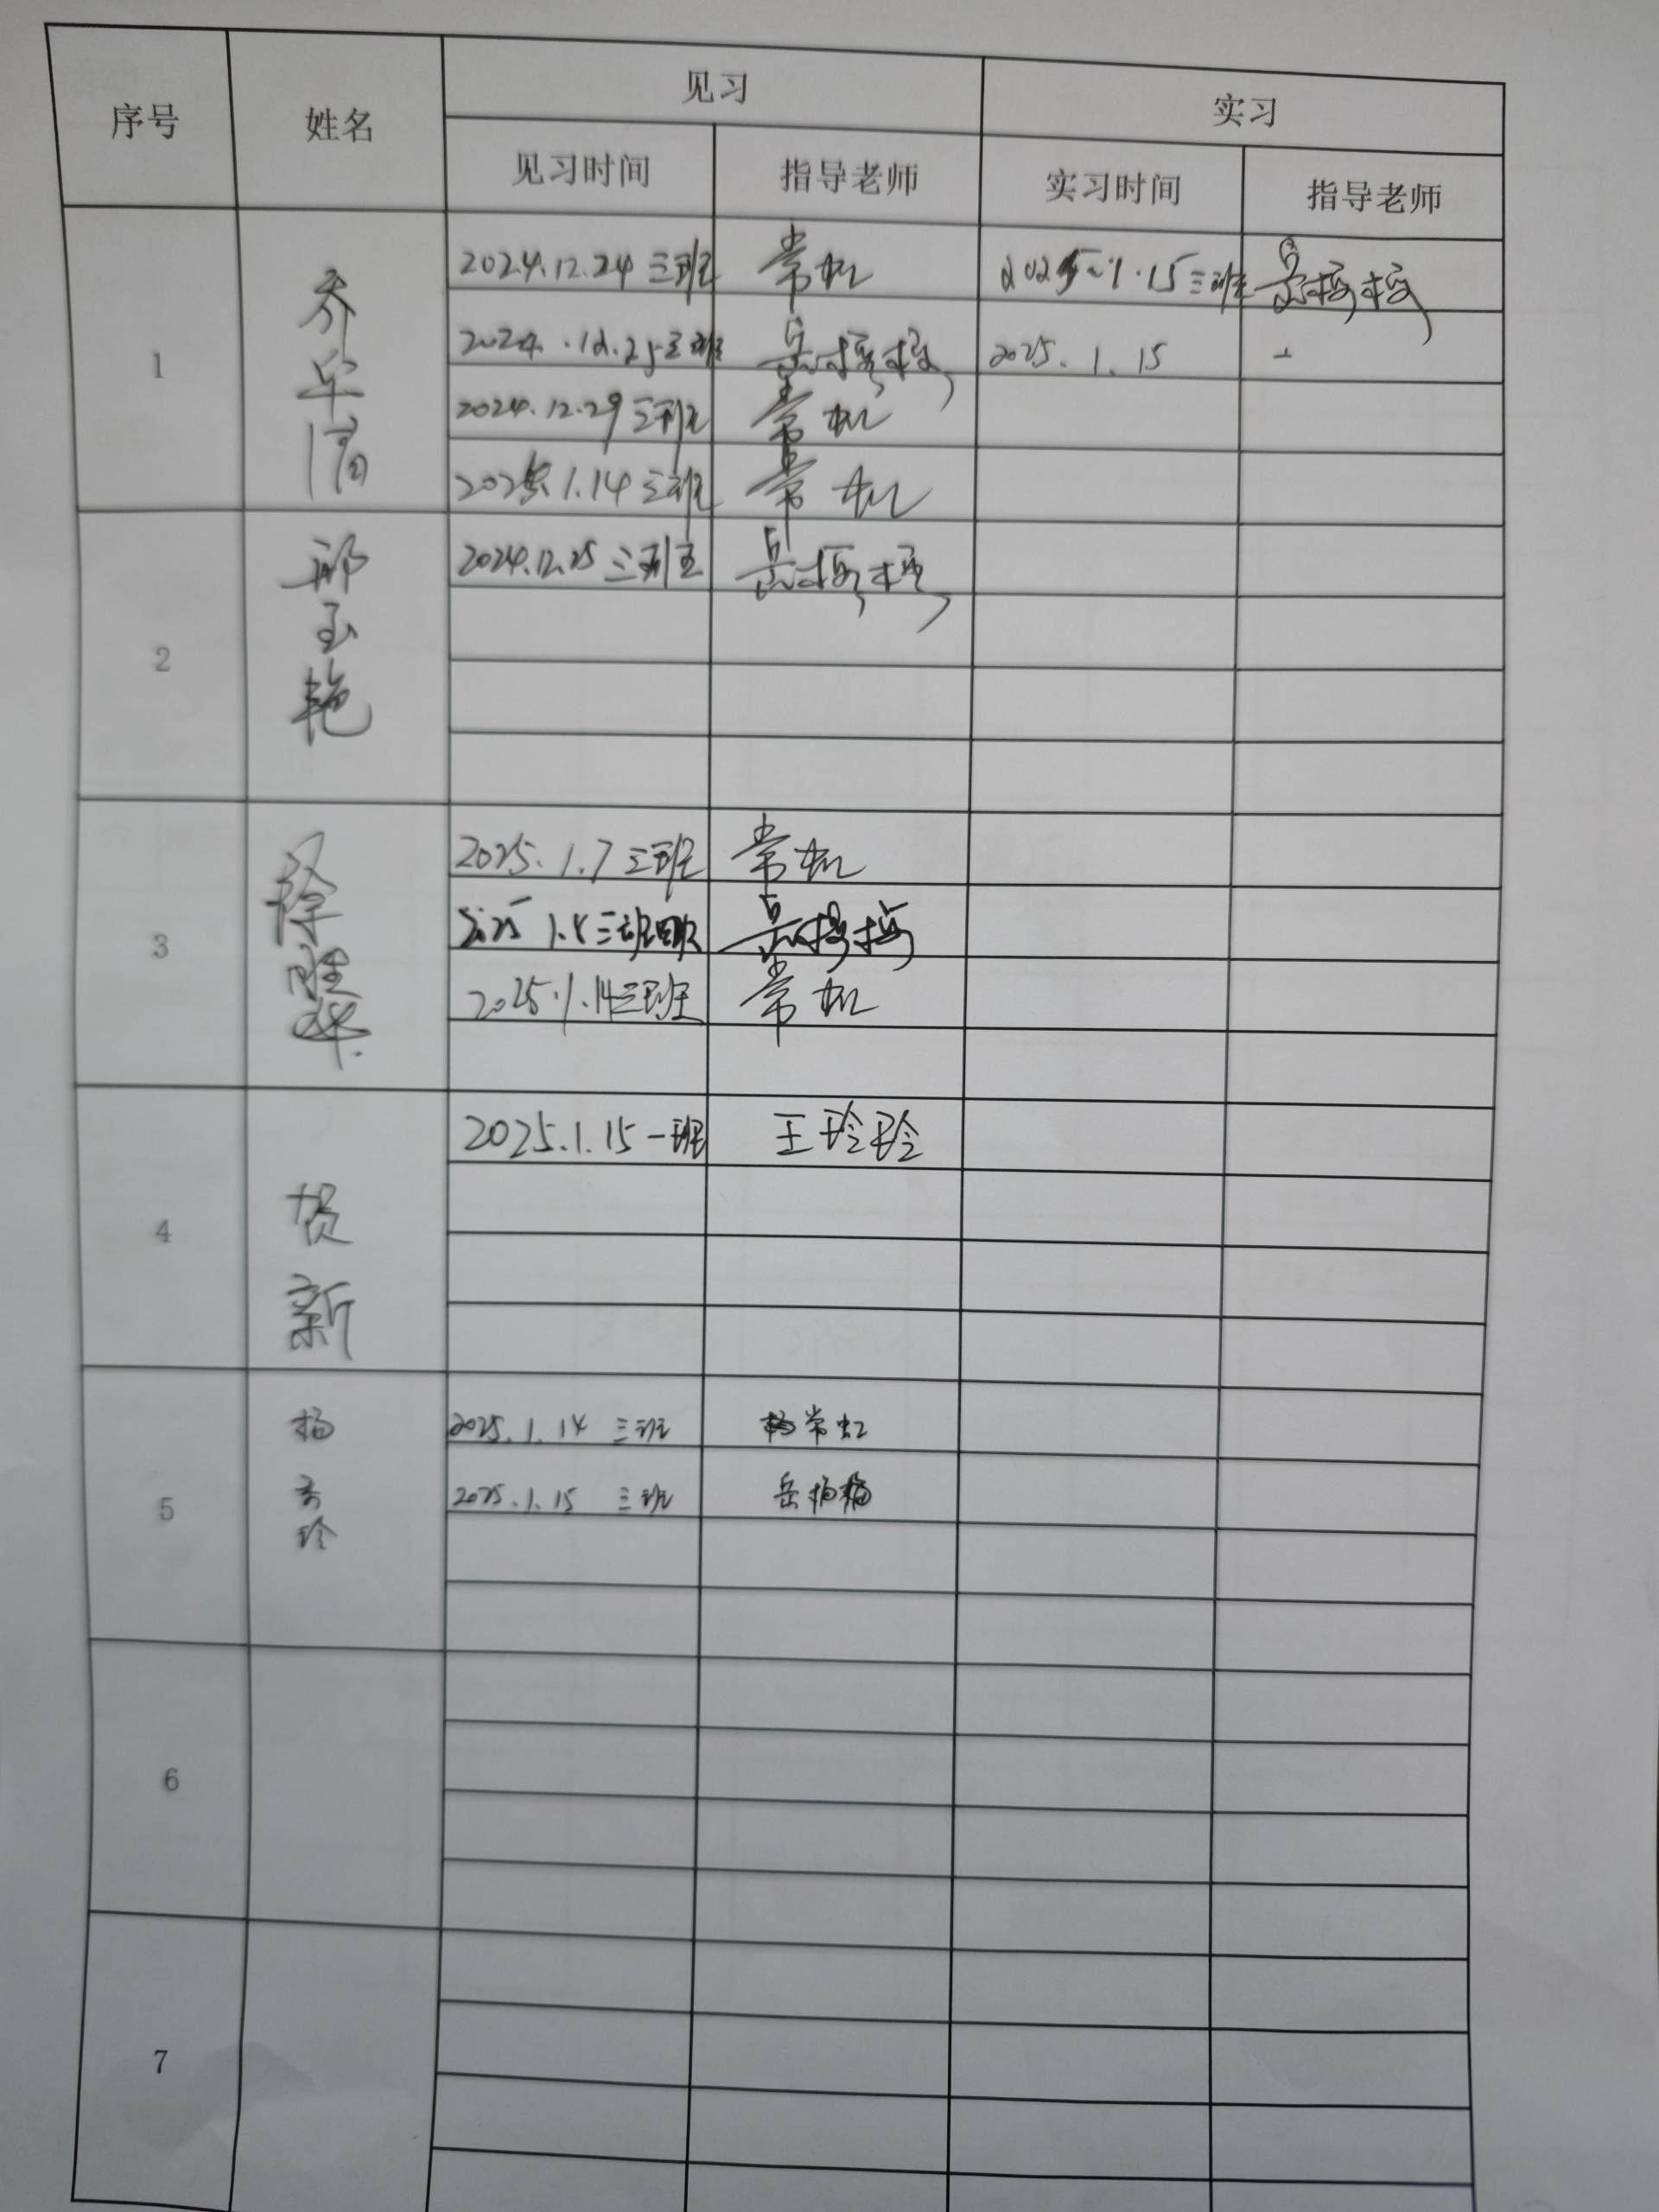 序号 姓名 见习 实习
见习时间 指导老师 实习时间 指导老师
1 乔 2024.12.24 三班 常虹 2025.1.15 三班 岳
2024.12.25 三班 岳 2025.1.15
2024.12.29 三班 常虹
2025.1.14 三班 常虹
2 邢玉艳 2024.12.25 三班 岳
3 徐胜 2025.1.7 三班 常虹
2025 1.8 三班 岳
2025.1.14 三班 常虹
4 贺新 2025.1.15 一班 王玲玲
5 杨 玲 2025.1.14 三班 常虹
2025.1.15 三班 岳
6
7